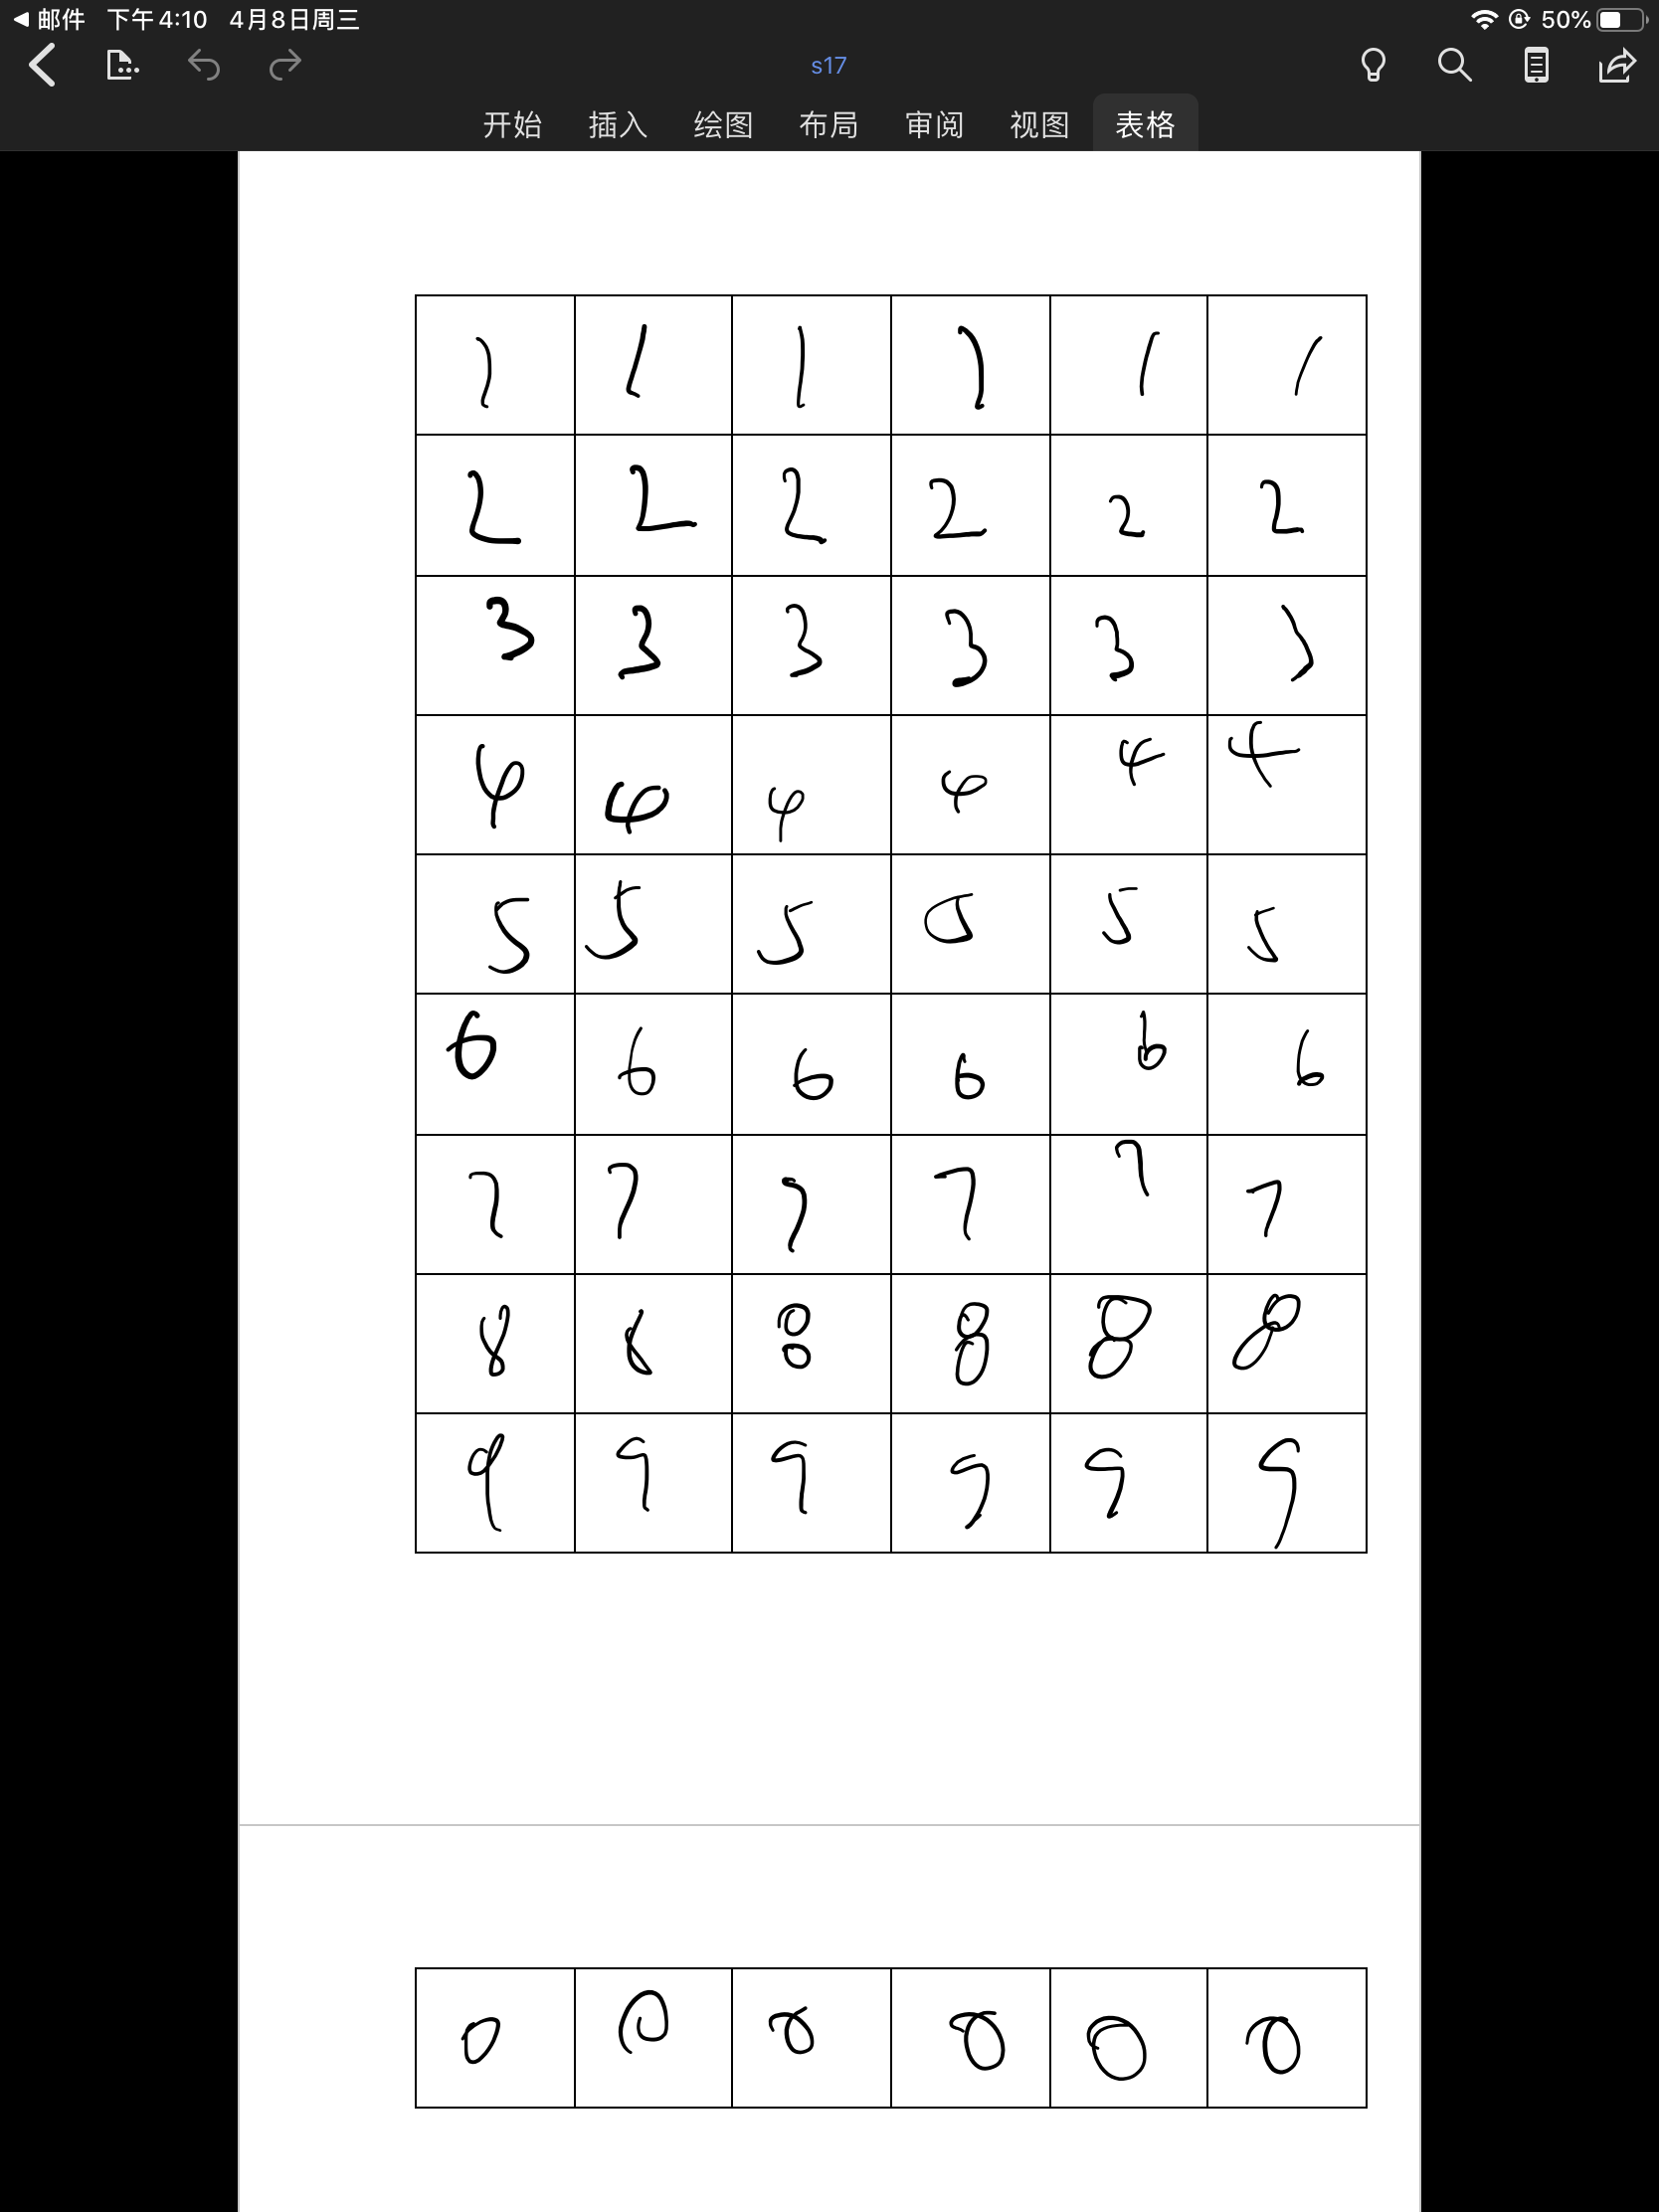 邮件 下午4:10 4月8日周三 50%
s17
开始 插入 绘图 布局 审阅 视图 表格
1 1 1 1 1 1
2 2 2 2 2 2
3 3 3 3 3 3
4 4 4 4 4 4
5 5 5 5 5 5
6 6 6 6 6 6
7 7 7 7 7 7
8 8 8 8 8 8
9 9 9 9 9 9
0 0 0 0 0 0